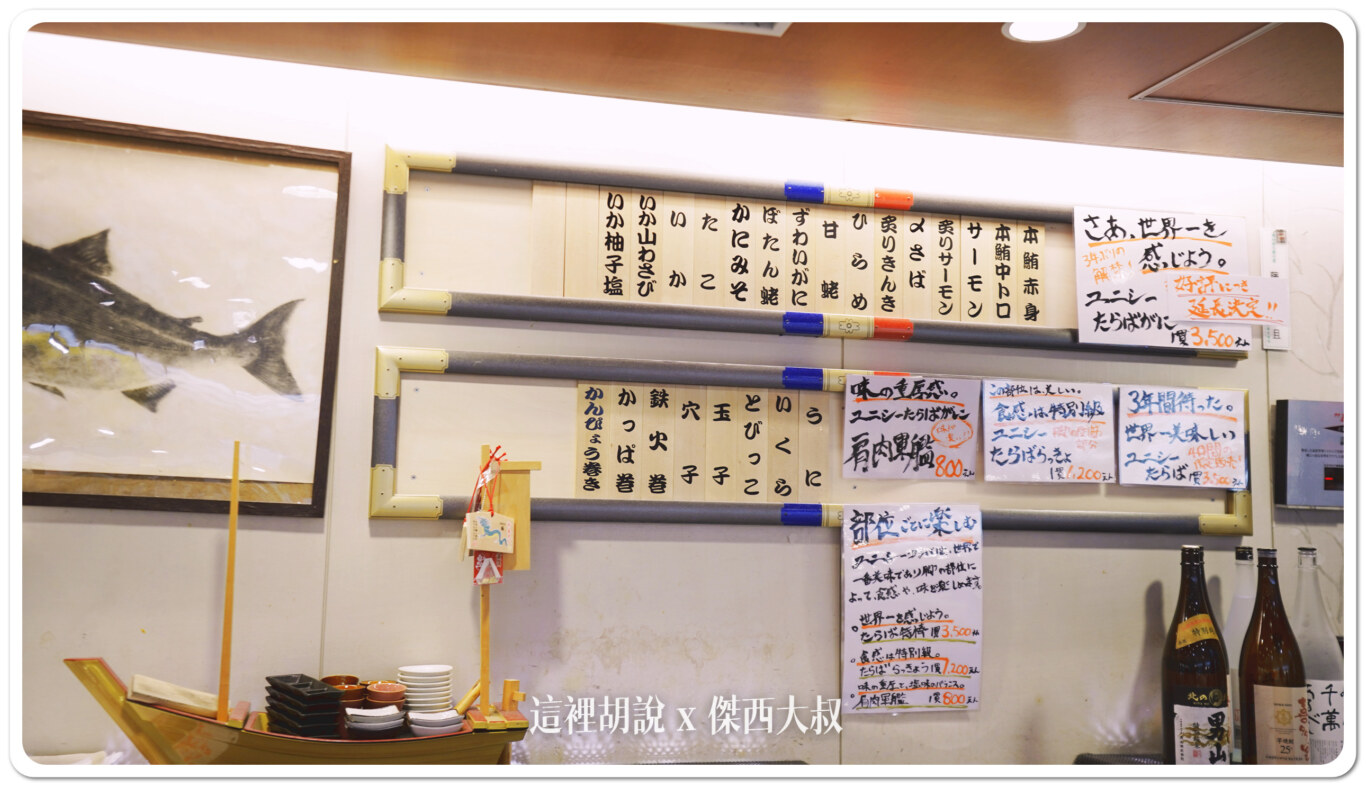 本鮪赤身
本鮪中トロ
サーモン
炙りサーモン
〆さば
炙りきんき
ひらめ
甘蛯
ずわいがに
ぼたん蛯
かにみそ
たこ
いか
いか山わさび
いか柚子塩
さあ、世界一を
感じよう。
3年ぶりの
解禁!
ユニシー
たらばがに
1貫3,500えん
好評につき
延長決定!!
うに
いくら
とびっこ
玉子
穴子
鉄火巻
かっぱ巻
かんぴょう巻き
味の重厚感。
ユニシーたらばがに
肩肉軍艦
800えん
この部位は美しい。
食感は特別級
ユニシー
たらばらっきょ
1貫1,200えん
3年間待った。
世界一美味しい
ユニシー
たらば
1貫3,500えん
部位ごとに楽しむ
世界一を感じよう。
1貫3,500えん
食感は特別級。
たらばらっきょう1貫1,200えん
肩肉軍艦 1貫800えん
北の
男山
25
千萬
這裡胡說 x 傑西大叔